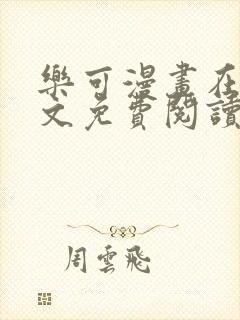 樂可漫畫在
文免費閱讀
周雲飛